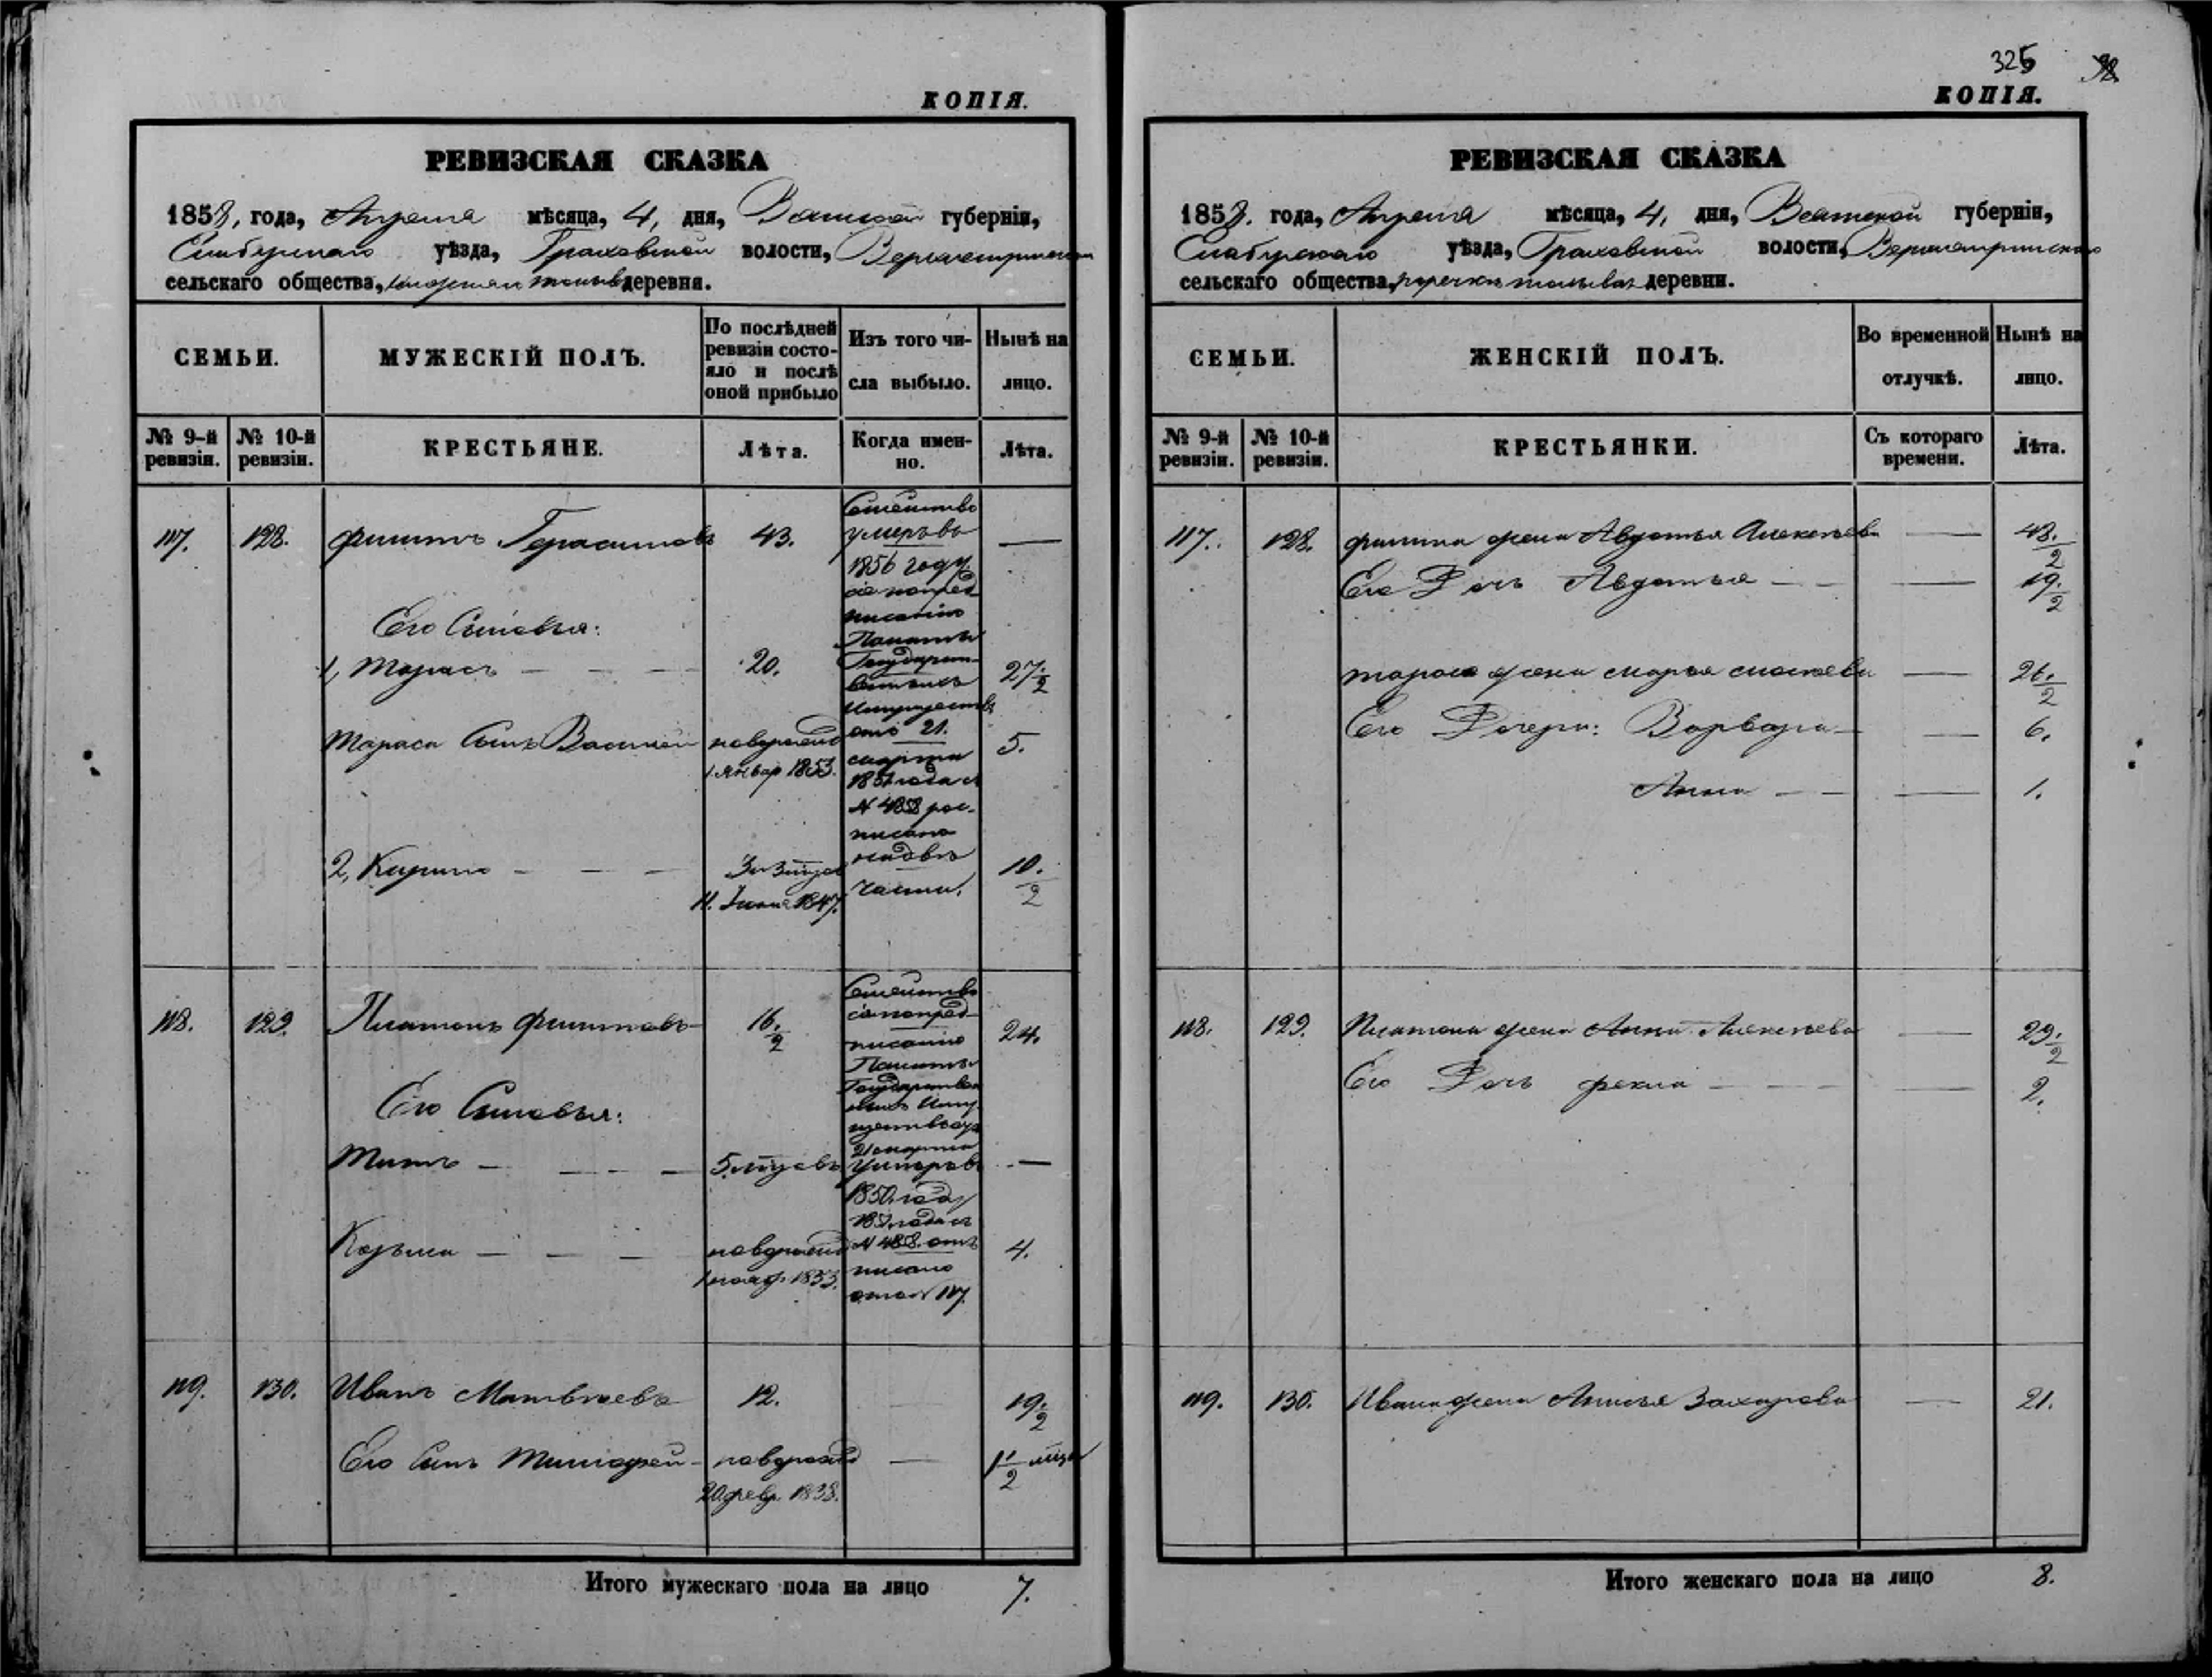 КОПІЯ.
РЕВИЗСКАЯ СКАЗКА
1858, года, Апреля мѣсяца, 4, дня, Вятской губерніи,
Елабужскаго уѣзда, Граховской волости,
сельскаго общества, деревни.
СЕМЬИ.
МУЖЕСКІЙ ПОЛЪ.
По послѣдней
ревизіи состо-
яло и послѣ
оной прибыло
Изъ того чи-
сла выбыло.
Нынѣ на
лицо.
№ 9-й
ревизіи.
№ 10-й
ревизіи.
КРЕСТЬЯНЕ.
Лѣта.
Когда имен-
но.
Лѣта.
117. 128. Филипъ Герасимовъ 43. —
Семейство
умеръ въ
1856 году
по пред
писанію
Палаты
Государст-
венныхъ
Имуществъ
отъ 21.
марта
1851 года съ
№ 4858 рас-
писано
на двѣ
части.
Его Сыновья:
1, Тарасъ — — — 20. 27./2
Тараса Сынъ Василей новорожд 5.
1 Январ 1853.
2, Кирило — — — 10./2
11. Іюня 1847.
118. 129. Платонъ Филиповъ — 16./2 24.
Семейство
по пред-
писанію
Палаты
Государствен
ныхъ Иму
ществъ отъ
21 марта
умеръ въ
1850. году
1851 года съ
№ 4858. от
писано
отъ № 117.
Его Сыновья:
Титъ — — — —
Козьма — — — новорожд 4.
1 нояб. 1853.
119. 130. Иванъ Матвѣевъ 12. 19./2
Его Сынъ Тимофей — новорожд — 1 1/2 мѣся
20 февр. 1858.
Итого мужескаго пола на лицо 7.
325
КОПІЯ.
РЕВИЗСКАЯ СКАЗКА
1858. года, Апреля мѣсяца, 4, дня, Вятской губерніи,
Елабужскаго уѣзда, Граховской волости,
сельскаго общества, деревни.
СЕМЬИ.
ЖЕНСКІЙ ПОЛЪ.
Во временной
отлучкѣ.
Нынѣ на
лицо.
№ 9-й
ревизіи.
№ 10-й
ревизіи.
КРЕСТЬЯНКИ.
Съ котораго
времени.
Лѣта.
117. 128. Филипа жена Авдотья Алексѣева — 48./2
Его Дочь Авдотья — — — 19./2
Тараса жена Марья — 26./2
Его Дочери: Варвара — — 6.
Анна — — — 1.
118. 129. Платона жена Анна Алексѣева — 29./2
Его Дочь Фекла — — — — 2.
119. 130. Ивана жена Анисья Захарова — 21.
Итого женскаго пола на лицо 8.